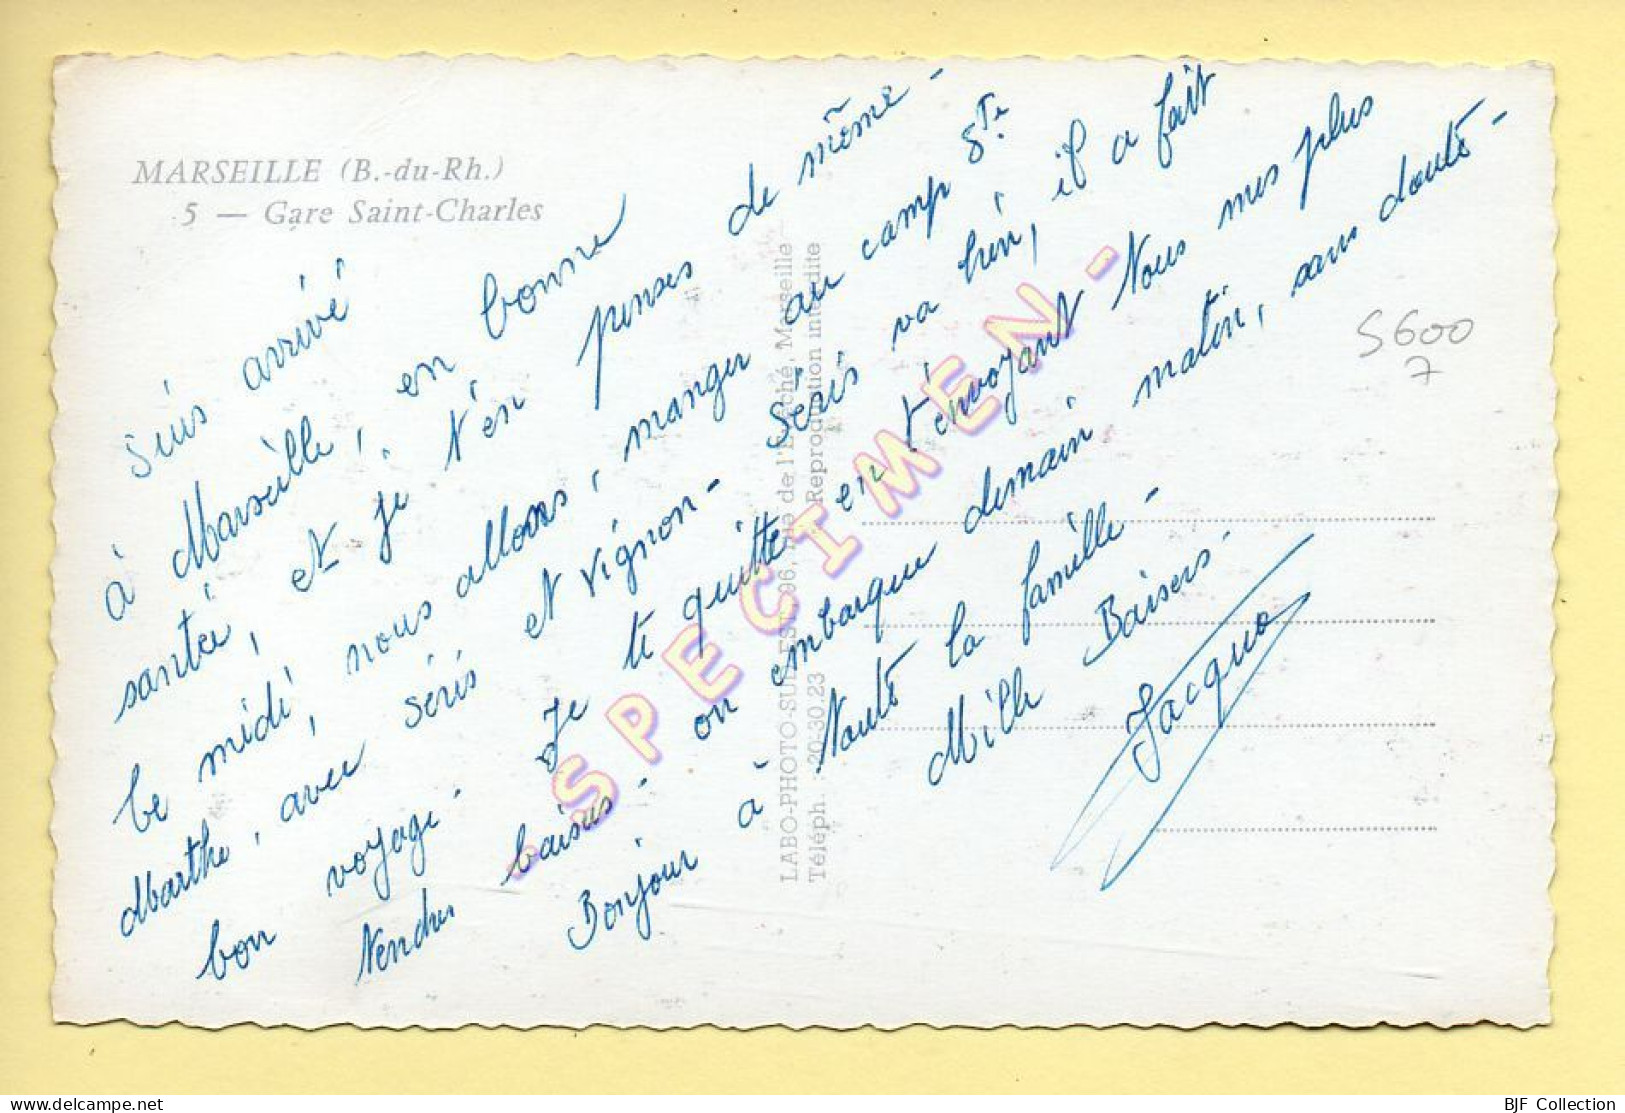 MARSEILLE (B.-du-Rh.)
5 — Gare Saint-Charles
Suis arrivé
à Marseille, en bonne
santée, et je t'en penses de même -
be midi nous allons, manger au camp Ste
Marthe, avec Séris et Vignon - Séris va bien, il a fait
bon voyage. Je te quitte en t'envoyant Nous mes plus
tendres baisers - on embarque demain matin, sans doute -
Bonjour à toute la famille -
Mille Baisers.
Jacquo
5600
7
LABO-PHOTO-SUD-EST, 96, rue de l'Evêché, Marseille
Téléph. : 20-30.23 Reproduction interdite
- SPECIMEN -
delcampe.net
BJF Collection